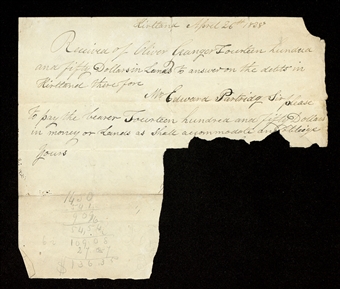 Kirtland April 26th 183
Received of Oliver Granger Fourteen hundred
and fifty Dollars in Lands to answer on the debts in
Kirtland there fore
Mr Edward Partridg Sir please
to pay the bearer Fourteen hundred and fifty Dollars
in money or Lands as shall accommodate and oblige
yours